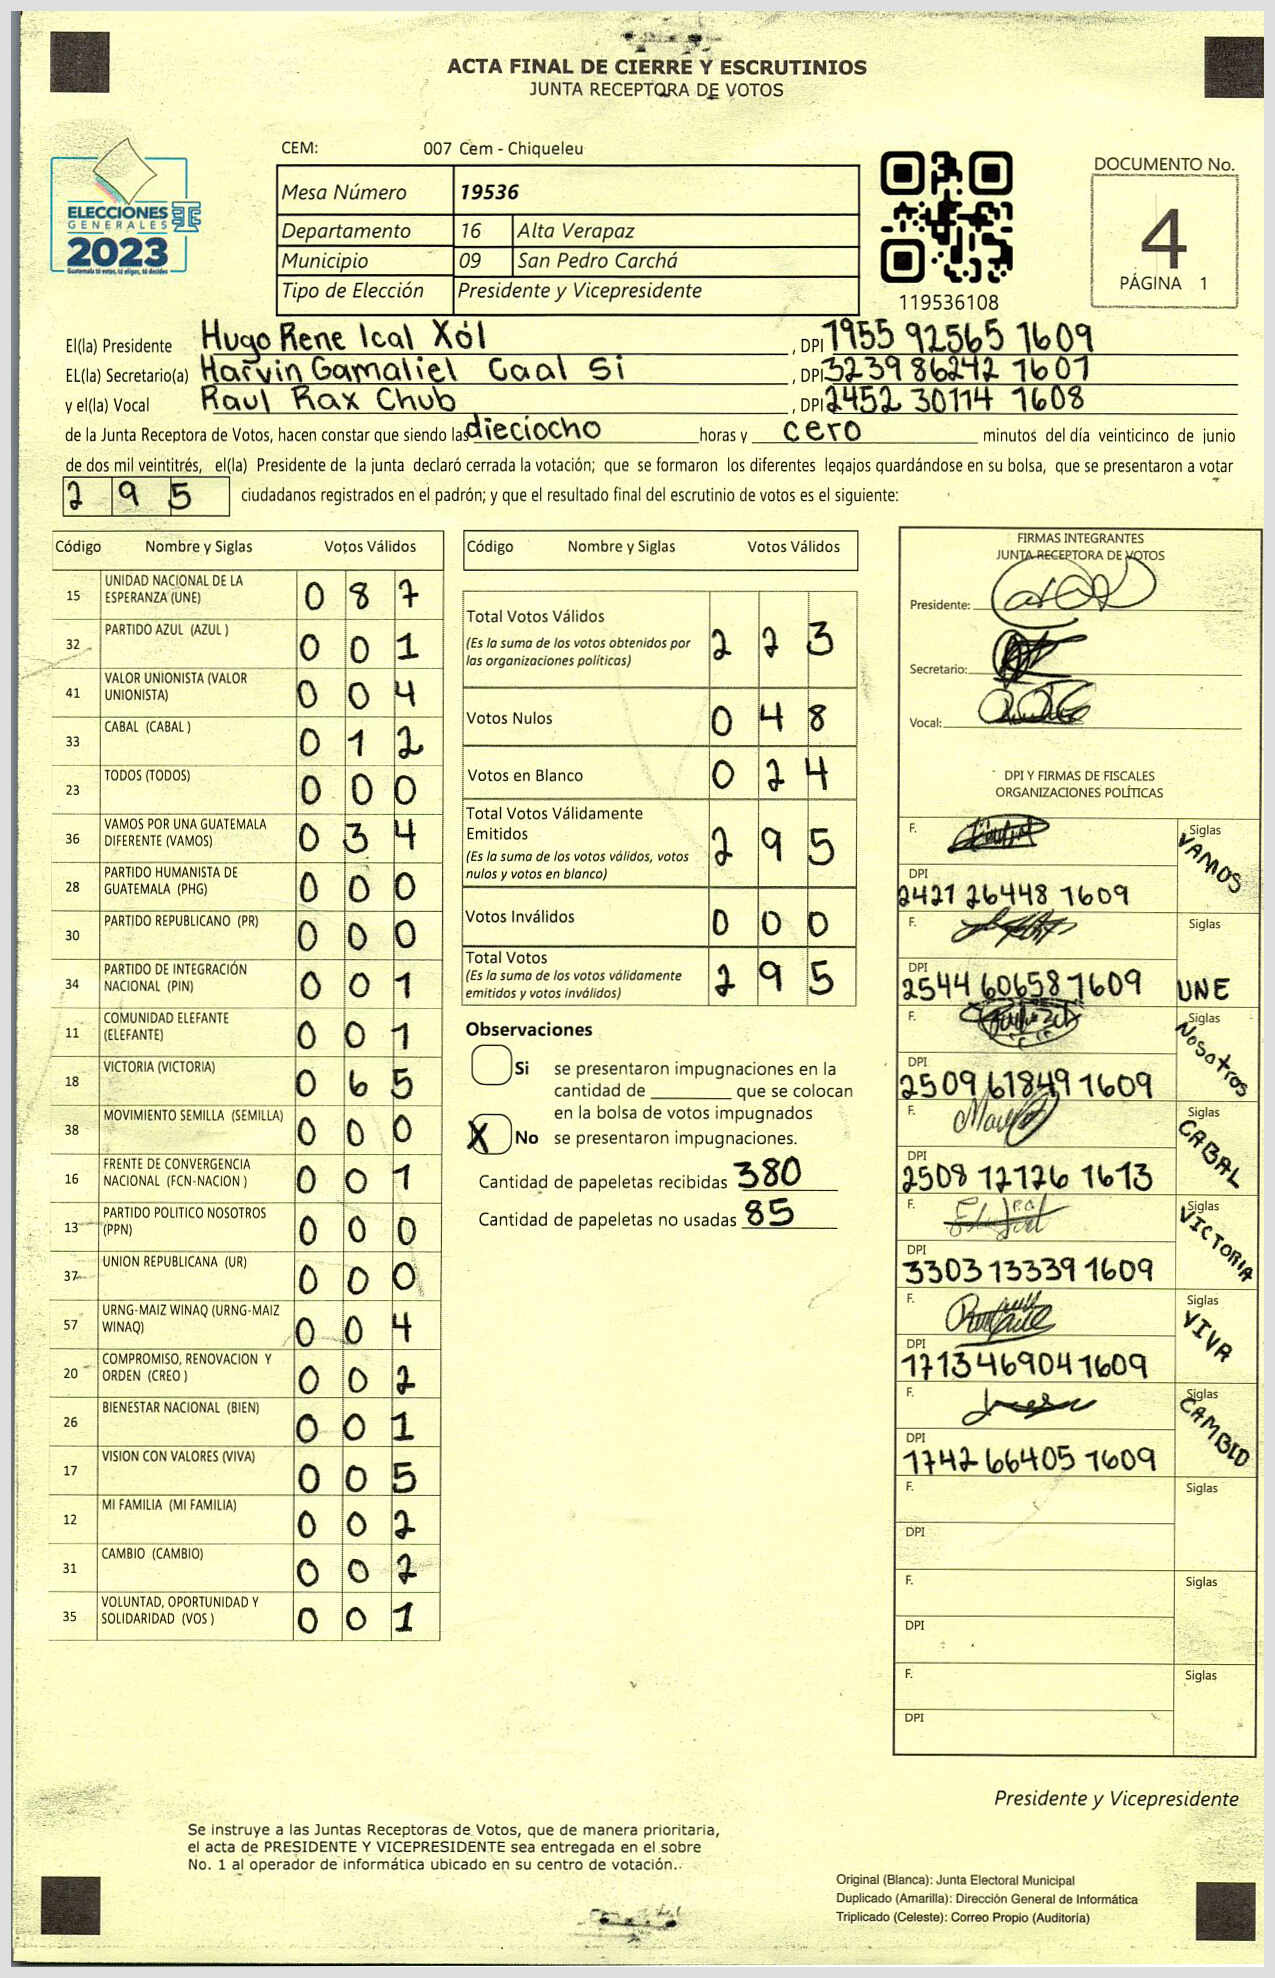 ACTA FINAL DE CIERRE Y ESCRUTINIOS
JUNTA RECEPTORA DE VOTOS
ELECCIONES
GENERALES
2023
Guatemala tú votas, tú eliges, tú decides
CEM: 007 Cem - Chiqueleu
Mesa Número 19536
Departamento 16 Alta Verapaz
Municipio 09 San Pedro Carchá
Tipo de Elección Presidente y Vicepresidente
119536108
DOCUMENTO No.
4
PÁGINA 1
El(la) Presidente Hugo Rene Ical Xól , DPI 1955 92565 1609
EL(la) Secretario(a) Harvin Gamaliel Caal Si , DPI 3239 86242 1607
y el(la) Vocal Raul Rax Chub , DPI 2452 30114 1608
de la Junta Receptora de Votos, hacen constar que siendo las dieciocho horas y cero minutos del día veinticinco de junio
de dos mil veintitrés, el(la) Presidente de la junta declaró cerrada la votación; que se formaron los diferentes legajos guardándose en su bolsa, que se presentaron a votar
295 ciudadanos registrados en el padrón; y que el resultado final del escrutinio de votos es el siguiente:
Código Nombre y Siglas Votos Válidos
15 UNIDAD NACIONAL DE LA
ESPERANZA (UNE) 0 8 7
32 PARTIDO AZUL (AZUL ) 0 0 1
41 VALOR UNIONISTA (VALOR
UNIONISTA) 0 0 4
33 CABAL (CABAL ) 0 1 2
23 TODOS (TODOS) 0 0 0
36 VAMOS POR UNA GUATEMALA
DIFERENTE (VAMOS) 0 3 4
28 PARTIDO HUMANISTA DE
GUATEMALA (PHG) 0 0 0
30 PARTIDO REPUBLICANO (PR) 0 0 0
34 PARTIDO DE INTEGRACIÓN
NACIONAL (PIN) 0 0 1
11 COMUNIDAD ELEFANTE
(ELEFANTE) 0 0 1
18 VICTORIA (VICTORIA) 0 6 5
38 MOVIMIENTO SEMILLA (SEMILLA) 0 0 0
16 FRENTE DE CONVERGENCIA
NACIONAL (FCN-NACION ) 0 0 1
13 PARTIDO POLITICO NOSOTROS
(PPN) 0 0 0
37 UNION REPUBLICANA (UR) 0 0 0
57 URNG-MAIZ WINAQ (URNG-MAIZ
WINAQ) 0 0 4
20 COMPROMISO, RENOVACION Y
ORDEN (CREO ) 0 0 2
26 BIENESTAR NACIONAL (BIEN) 0 0 1
17 VISION CON VALORES (VIVA) 0 0 5
12 MI FAMILIA (MI FAMILIA) 0 0 2
31 CAMBIO (CAMBIO) 0 0 2
35 VOLUNTAD, OPORTUNIDAD Y
SOLIDARIDAD (VOS ) 0 0 1
Código Nombre y Siglas Votos Válidos
Total Votos Válidos 2 2 3
(Es la suma de los votos obtenidos por
las organizaciones políticas)
Votos Nulos 0 4 8
Votos en Blanco 0 2 4
Total Votos Válidamente
Emitidos 2 9 5
(Es la suma de los votos válidos, votos
nulos y votos en blanco)
Votos Inválidos 0 0 0
Total Votos 2 9 5
(Es la suma de los votos válidamente
emitidos y votos inválidos)
Observaciones
Si se presentaron impugnaciones en la
cantidad de ________ que se colocan
en la bolsa de votos impugnados
X No se presentaron impugnaciones.
Cantidad de papeletas recibidas 380
Cantidad de papeletas no usadas 85
FIRMAS INTEGRANTES
JUNTA RECEPTORA DE VOTOS
Presidente:
Secretario:
Vocal:
DPI Y FIRMAS DE FISCALES
ORGANIZACIONES POLÍTICAS
F. Siglas VAMOS
DPI
2421 26448 1609
F. Siglas
DPI
2544 60658 1609 UNE
F. Siglas Nosotros
DPI
2509 61849 1609
F. Siglas CABAL
DPI
2508 12126 1613
F. Siglas VICTORIA
DPI
3303 13339 1609
F. Siglas VIVA
DPI
1713 46904 1609
F. Siglas CAMBIO
DPI
1742 66405 1609
F. Siglas
DPI
F. Siglas
DPI
F. Siglas
DPI
Presidente y Vicepresidente
Se instruye a las Juntas Receptoras de Votos, que de manera prioritaria,
el acta de PRESIDENTE Y VICEPRESIDENTE sea entregada en el sobre
No. 1 al operador de informática ubicado en su centro de votación.
Original (Blanca): Junta Electoral Municipal
Duplicado (Amarilla): Dirección General de Informática
Triplicado (Celeste): Correo Propio (Auditoría)